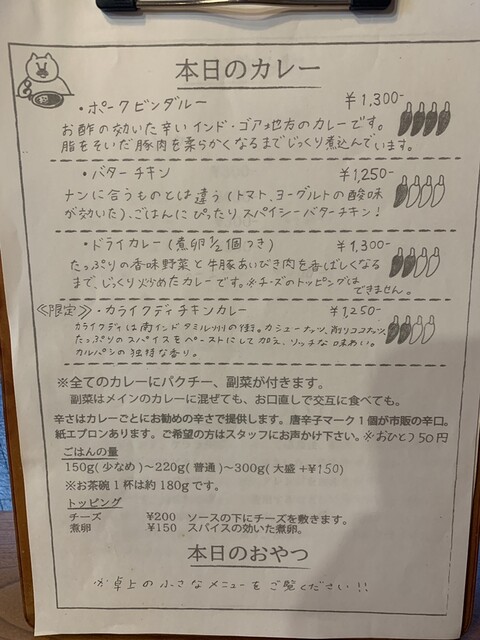 本日のカレー
・ポークビンダルー ￥1,300-
お酢の効いた辛いインド・ゴア地方のカレーです。
脂をそいだ豚肉を柔らかくなるまでじっくり煮込んでいます。
・バターチキン ￥1,250-
ナンに合うものとは違う(トマト、ヨーグルトの酸味
が効いた)、ごはんにぴったりスパイシーバターチキン！
・ドライカレー(煮卵½個つき) ￥1,300-
たっぷりの香味野菜と牛豚あいびき肉を香ばしくなる
まで、じっくり炒めたカレーです。※チーズのトッピングは
できません。
≪限定≫・カライクディチキンカレー ￥1,250-
カライクディは南インドタミル州の街。カシューナッツ、削りココナッツ、
たっぷりのスパイスをペーストにして加え、リッチな味わい。
カルパシの独特な香り。
※全てのカレーにパクチー、副菜が付きます。
副菜はメインのカレーに混ぜても、お口直しで交互に食べても。
辛さはカレーごとにお勧めの辛さで提供します。唐辛子マーク１個が市販の辛口。
紙エプロンあります。ご希望の方はスタッフにお声かけ下さい。※おひとつ50円
ごはんの量
150g(少なめ)～220g(普通)～300g(大盛+¥150)
※お茶碗１杯は約180gです。
トッピング
チーズ ¥200 ソースの下にチーズを敷きます。
煮卵 ¥150 スパイスの効いた煮卵。
本日のおやつ
※卓上の小さなメニューをご覧ください!!